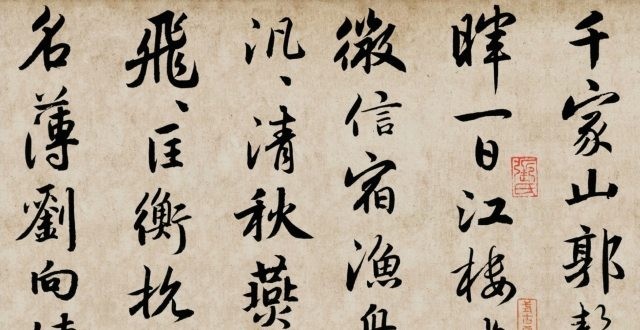 千家山郭
暉一日江樓
微信宿漁舟
汎〻清秋燕
飛〻匡衡抗
名薄劉向